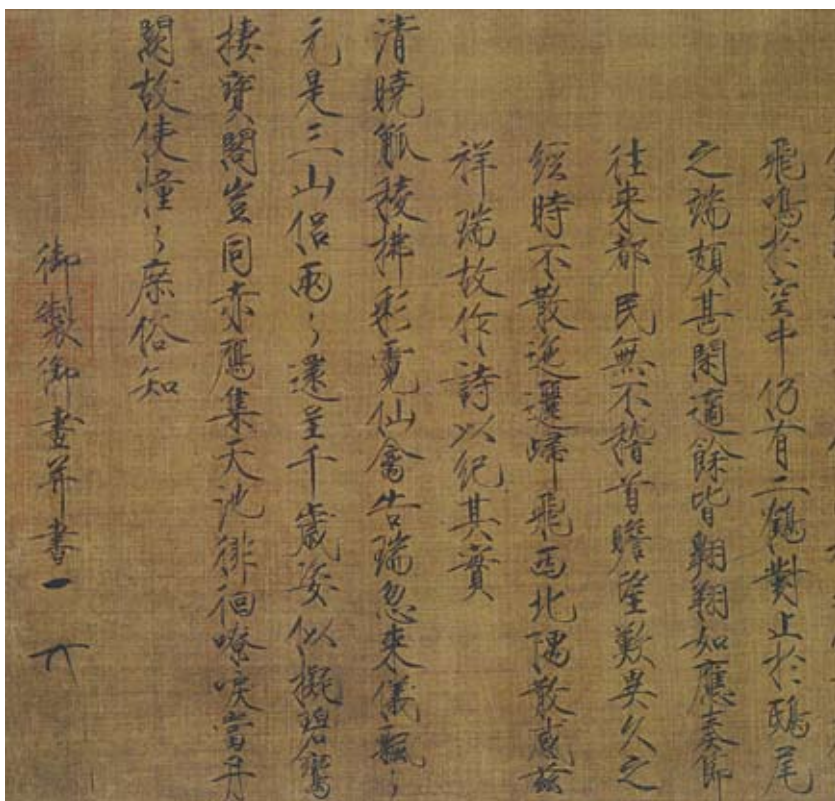 飛鳴於空中仍有二鶴對止於鴟尾
之端頗甚閑適餘皆翱翔如應奏節
往來都民無不稽首瞻望歎異久之
經時不散迤邐歸飛西北隅散感茲
祥瑞故作詩以紀其實
清曉觚稜拂彩霓仙禽告瑞忽來儀飄〻
元是三山侶兩〻還呈千歲姿似擬碧鸞
棲寶閣豈同赤鴈集天池徘徊嘹唳當丹
闕故使憧〻庶俗知
御製御畫并書